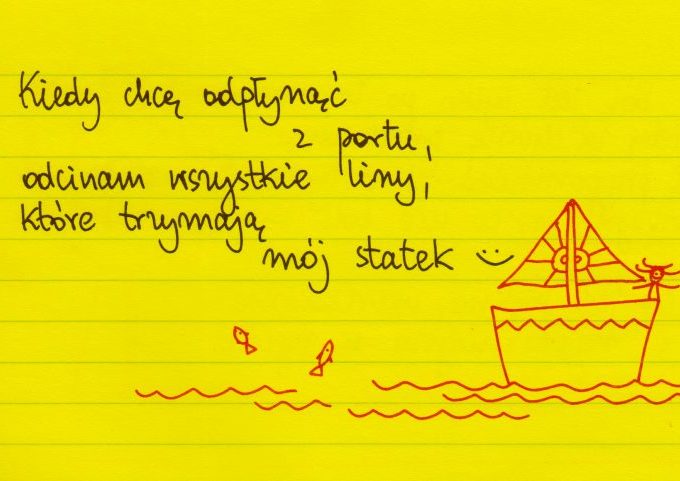 Kiedy chcę odpłynąć
z portu,
odcinam wszystkie liny,
które trzymają
mój statek :)